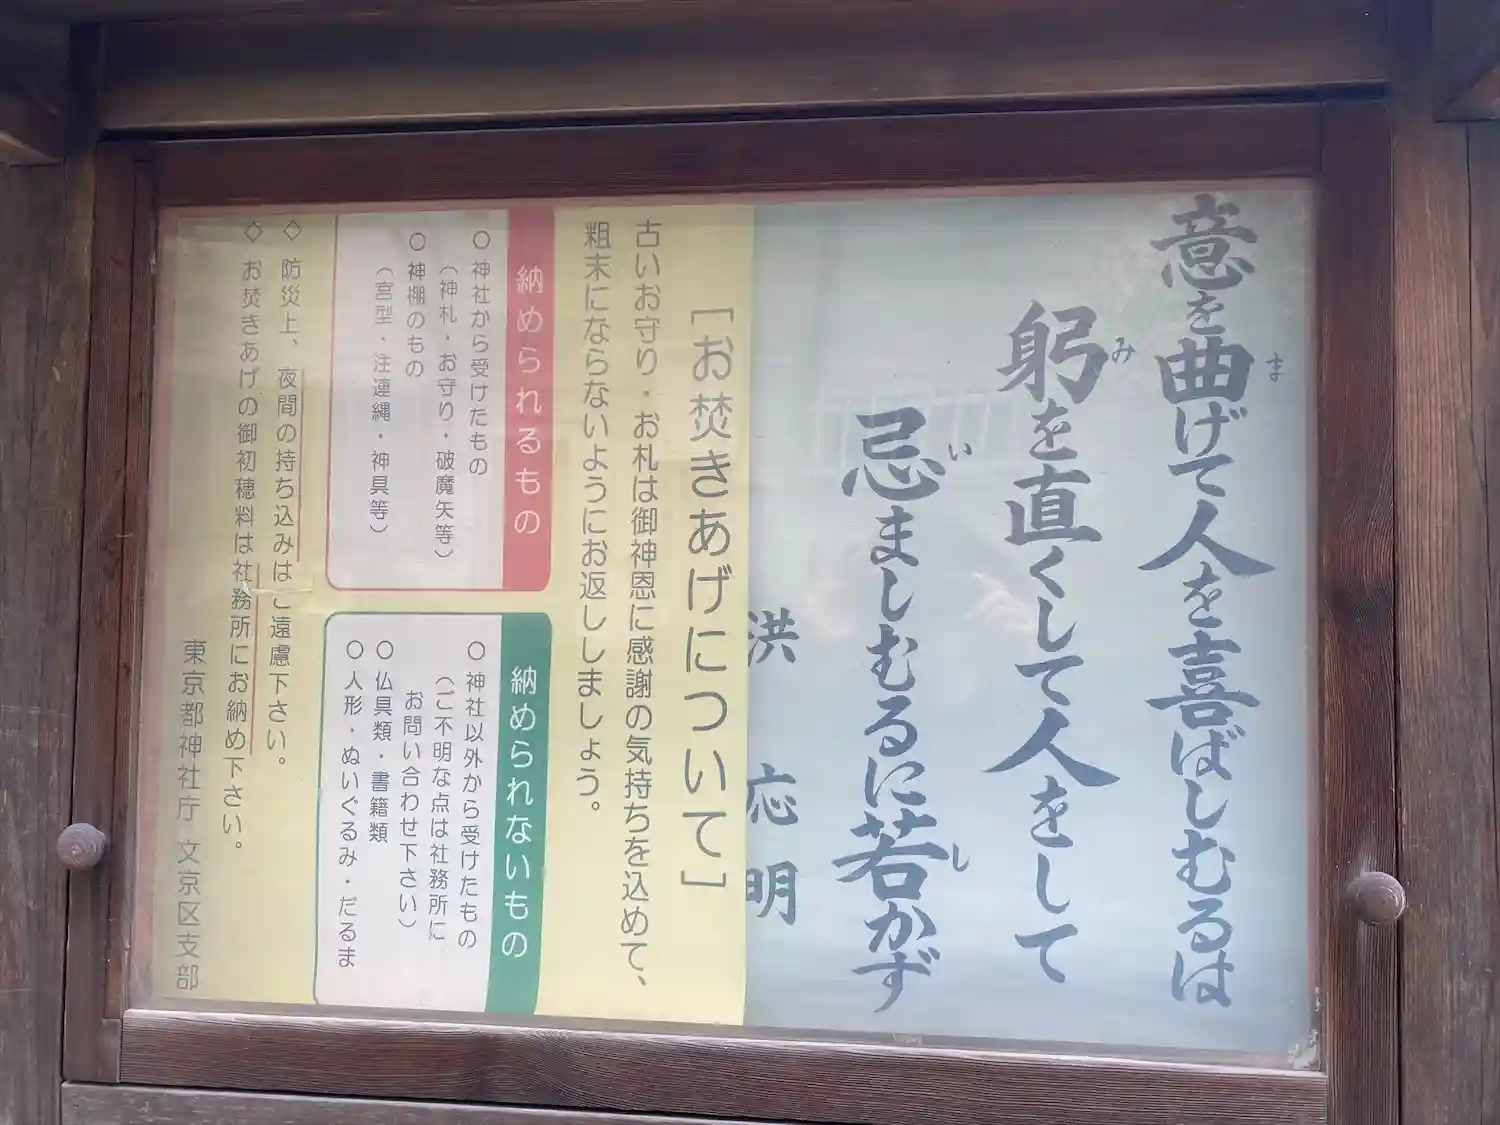 意を曲げて人を喜ばしむるは
ま
躬を直くして人をして
み
忌ましむるに若かず
い
し
洪応明
［お焚きあげについて］
古いお守り・お札は御神恩に感謝の気持ちを込めて、
粗末にならないようにお返ししましょう。
納められるもの
○神社から受けたもの
（神札・お守り・破魔矢等）
○神棚のもの
（宮型・注連縄・神具等）
納められないもの
○神社以外から受けたもの
（ご不明な点は社務所に
お問い合わせ下さい）
○仏具類・書籍類
○人形・ぬいぐるみ・だるま
◇防災上、夜間の持ち込みはご遠慮下さい。
◇お焚きあげの御初穂料は社務所にお納め下さい。
東京都神社庁 文京区支部